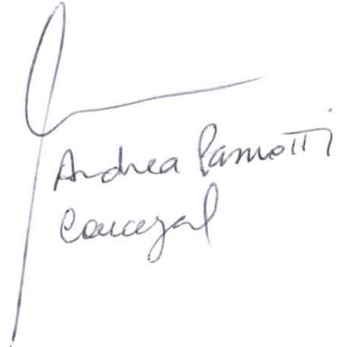 Andrea Pamotti
Concejal